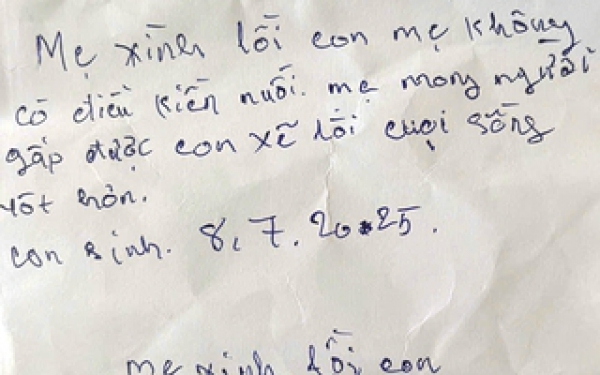 Mẹ xình lỗi con mẹ không
có điều kiền nuối. mẹ mong người
gấp được con xẽ lỗi cuọi sống
tốt hơn.
con sinh. 8.7.2025.
mẹ xinh lỗi con